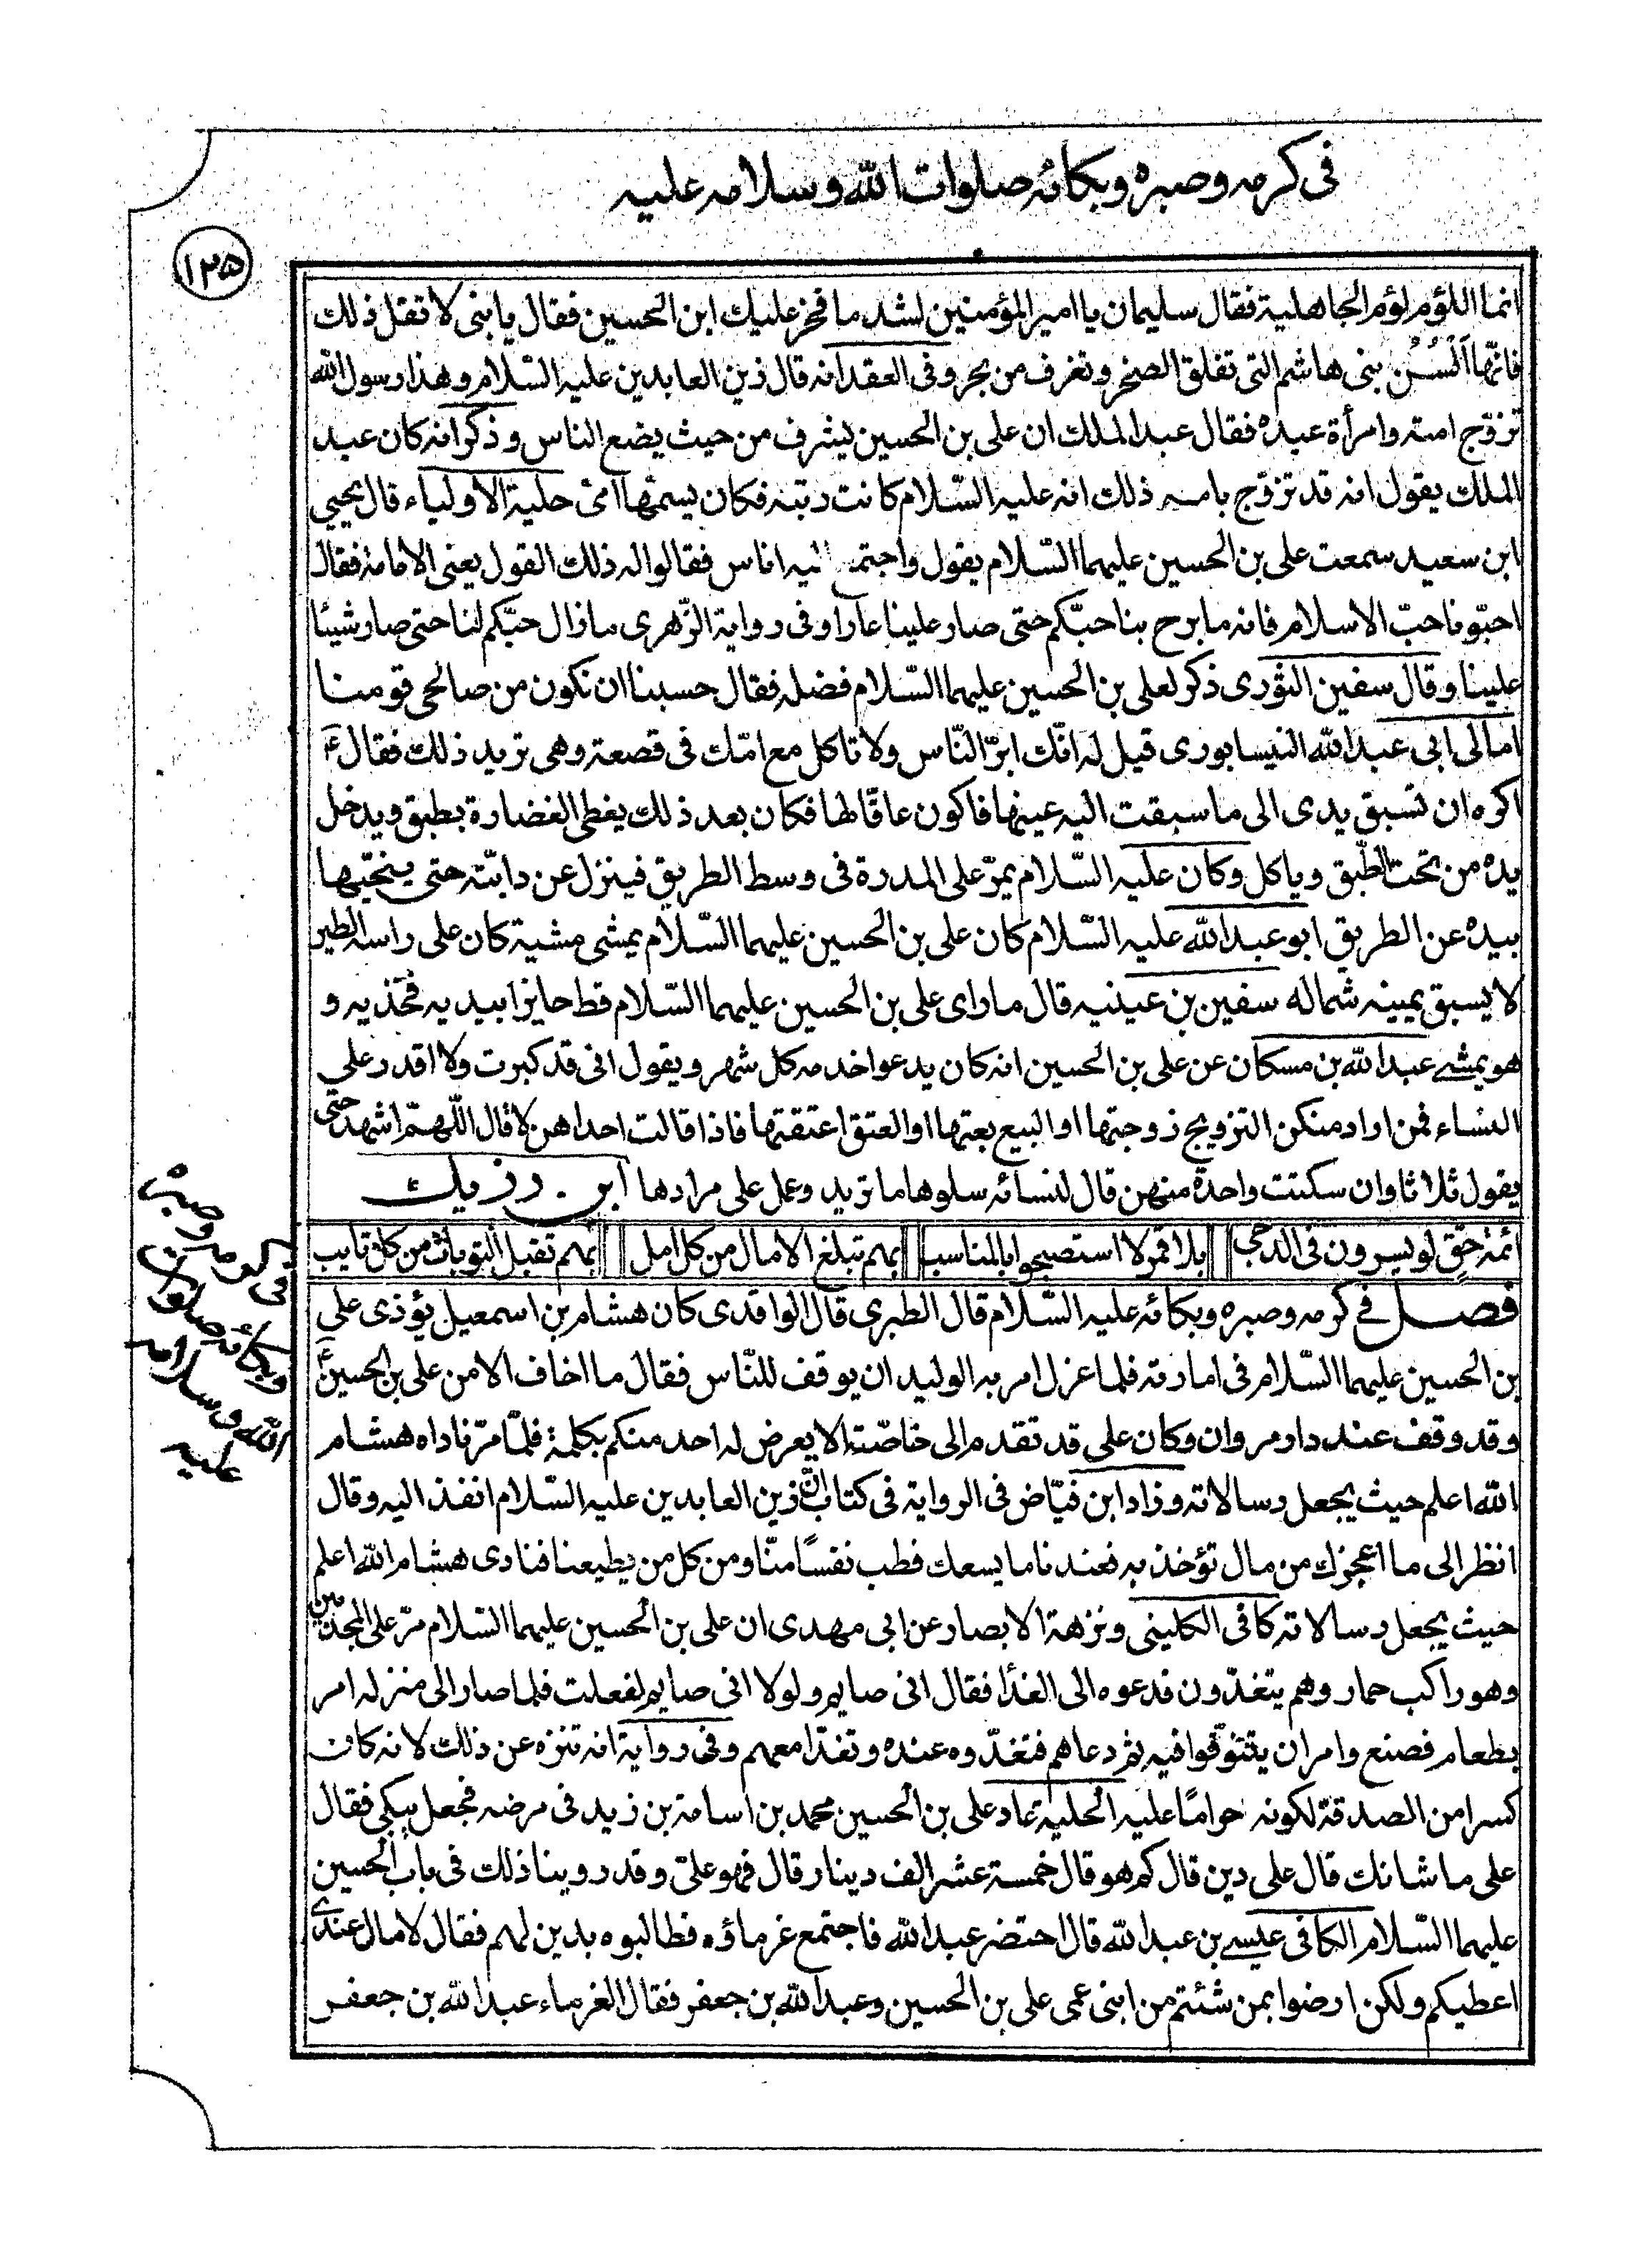 فى كرمه وصبره وبكائه صلوات الله وسلامه عليه
١٢٥
انما اللؤم لؤم الجاهلية فقال سليمان يا امير المؤمنين لشد ما فخر عليك ابن الحسين فقال يا بنى لا تقل ذلك
فانّها اَلْسُنْ بنى هاشم التى تفلق الصخر وتغرف من بحر وفى العقد انه قال زين العابدين عليه السّلام وهذا رسول الله
تزوّج امته وامرأة عبده فقال عبد الملك ان على بن الحسين يشرف من حيث يضع الناس وذكر انه كان عبد
الملك يقول انه قد تزوّج بامه ذلك انه عليه السّلام كانت ربته فكان يسمّها امى حلية الاولياء قال يحيي
ابن سعيد سمعت على بن الحسين عليهما السّلام يقول واجتمع اليه اناس فقالوا له ذلك القول يعنى الامامة فقال
احبّونا حبّ الاسلام فانه ما برح بنا حبّكم حتى صار علينا عارا وفى رواية الزّهرى ما زال حبّكم لنا حتى صار شيئا
علينا وقال سفين الثوّرى ذكر لعلى بن الحسين عليهما السّلام فضله فقال حسبنا ان نكون من صالحى قومنا
امالى ابى عبد الله النيسابورى قيل له انّك ابرّ النّاس ولا تاكل مع امّك فى قصعة وهى تريد ذلك فقال ع
اكره ان تسبق يدى الى ما سبقت اليه عينها فاكون عاقّا لها فكان بعد ذلك يغطى الغضارة بطبق ويدخل
يده من تحت الطّبق وياكل وكان عليه السّلام يمرّ على المدرة فى وسط الطريق فينزل عن دابّته حتى ينحّيها
بيده عن الطريق ابو عبد الله عليه السّلام كان على بن الحسين عليهما السّلام يمشى مشية كان على راسه الطير
لا يسبق يمينه شماله سفين بن عيينيه قال ما راى على بن الحسين عليهما السّلام قط حايزا بيديه فخذيه و
هو يمشے عبد الله بن مسكان عن على بن الحسين انه كان يدعوا خدمه كل شهر ويقول انى قد كبرت ولا اقدر على
النساء فمن اراد منكن التزويج زوجتها او البيع بعتها او العتق اعتقتها فاذا قالت احداهن لا قال اللّهمّ اشهد حتى
يقول ثلاثا وان سكتت واحدة منهن قال لنسائه سلوها ما تريد وعمل على مرادها ابن رزيك ع
ائمة حق لو يسرون فى الدجى بلا قمر لا استصبحوا بالمناسب بهم تبلغ الامال من كل امل بهم تقبل التوبات من كل تايب
فصل فے كرمه وصبره وبكائه عليه السّلام قال الطبرى قال الواقدى كان هشام بن اسمعيل يؤذى على
بن الحسين عليهما السّلام فى امارته فلما عزل امر به الوليد ان يوقف للنّاس فقال ما اخاف الا من على بن الحسين ع
وقد وقف عند دار مروان وكان على قد تقدم الى خاصّته الا يعرض له احد منكم بكلمة فلمّا مرّ ناداه هشام
الله اعلم حيث يجعل رسالاته وزاد ابن فيّاض فى الرواية فى كتابه انّ زين العابدين عليه السّلام انفذ اليه وقال
انظر الى ما اعجزك من مال تؤخذ به فعندنا ما يسعك فطب نفسًا منّا ومن كل من يطيعنا فنادى هشام الله اعلم
حيث يجعل رسالاته كافى الكلينى ونزهة الابصار عن ابى مهدى ان على بن الحسين عليهما السّلام مرّ على المجذمين
وهو راكب حمار وهم يتغدّون فدعوه الى الغدأ فقال انى صايم ولولا انى صايم لفعلت فلما صار الى منزله امر
بطعام فصنع وامر ان يتنوّقوا فيه ثم دعاهم فتغدّوه عنده وتغدّا معهم وفى رواية انه تنزه عن ذلك لانه كان
كسرا من الصدقة لكونه حرامًا عليه الحلية عاد على بن الحسين محمد بن اسامة بن زيد فى مرضه فجعل يبكى فقال
على ما شانك قال على دين قال كم هو قال خمسة عشر الف دينار قال فهو علىّ وقد روينا ذلك فى باب الحسين
عليهما السّلام الكافى عيسے بن عبد الله قال احتضر عبد الله فاجتمع غرماؤه فطالبوه بدين لهم فقال لا مال عندى
اعطيكم ولكن ارضوا بمن شئتم من ابنى عمى على بن الحسين وعبد الله بن جعفر فقال الغرماء عبد الله بن جعفر
فى كرمه وصبره
وبكائه صلوات
الله وسلامه
عليه